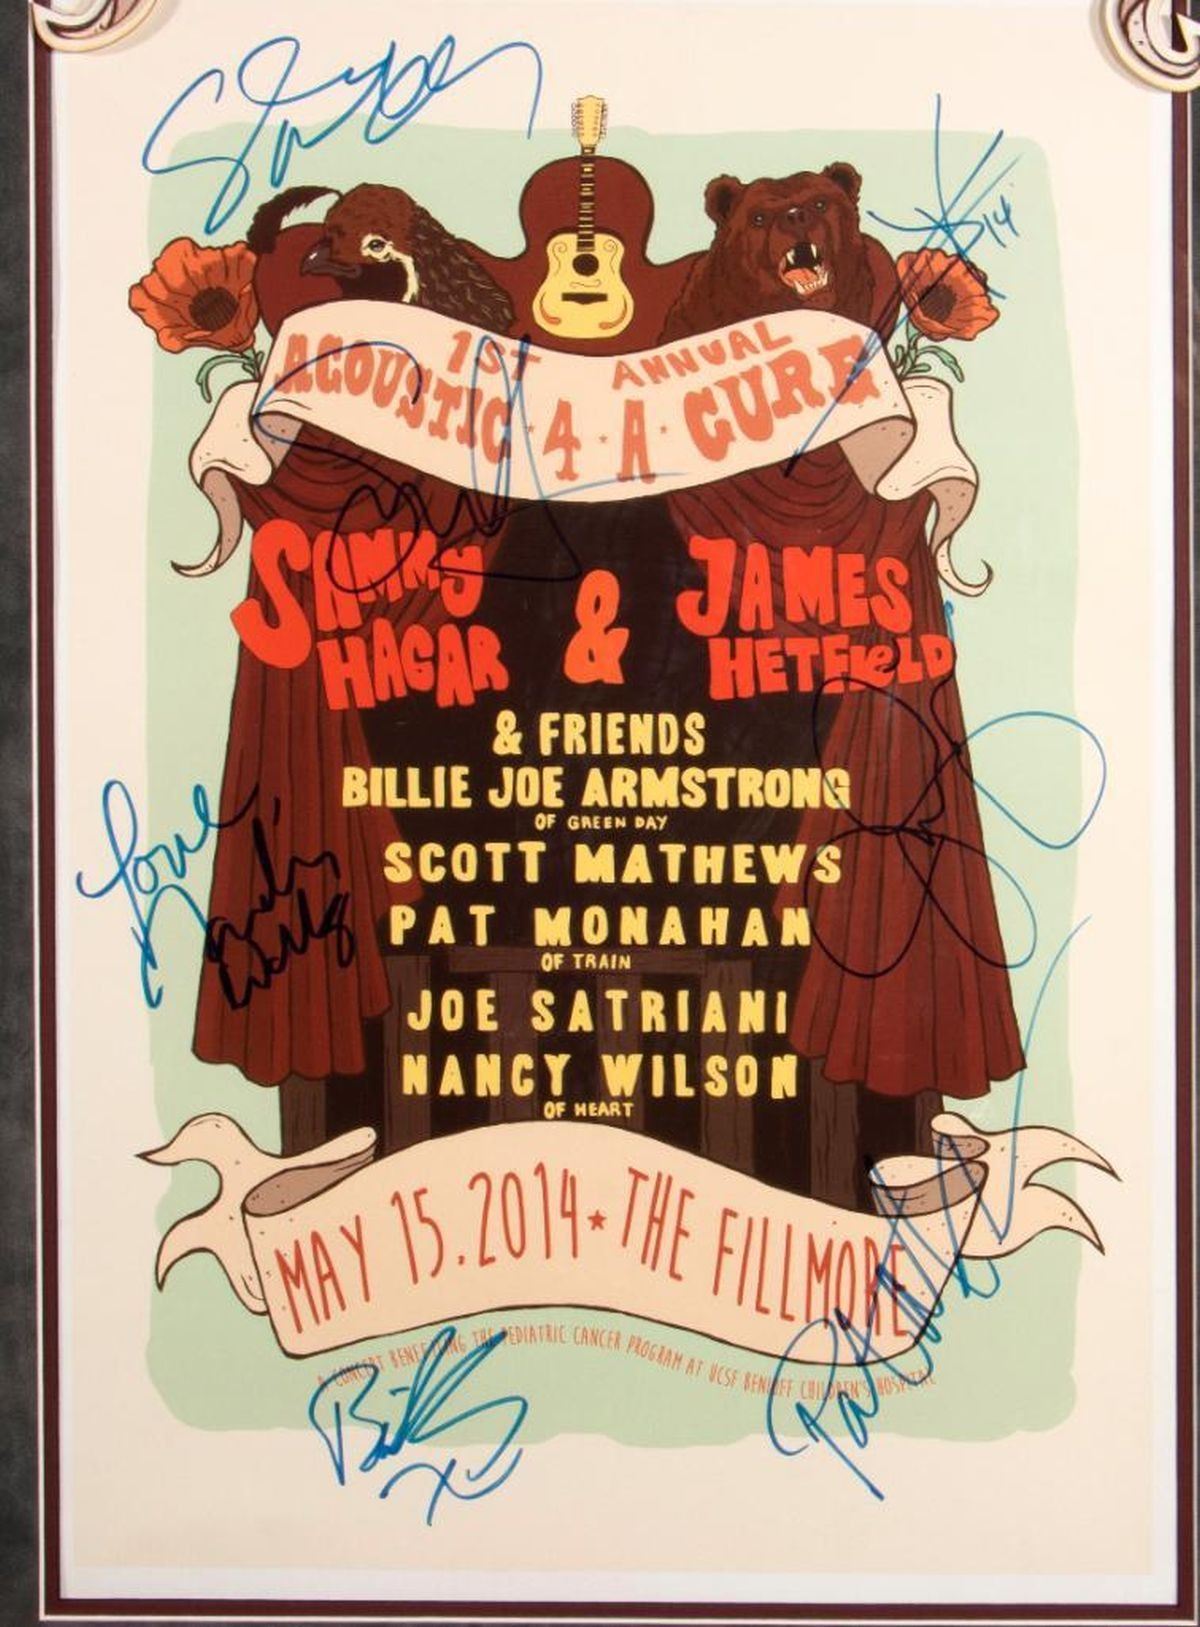 1ST ANNUAL
ACOUSTIC · 4 · A · CURE
SAMMY HAGAR & JAMES HETFIELD
& FRIENDS
BILLIE JOE ARMSTRONG
OF GREEN DAY
SCOTT MATHEWS
PAT MONAHAN
OF TRAIN
JOE SATRIANI
NANCY WILSON
OF HEART
Love
MAY 15.2014 ★ THE FILLMORE
A CONCERT BENEFITING THE PEDIATRIC CANCER PROGRAM AT UCSF BENIOFF CHILDREN'S HOSPITAL